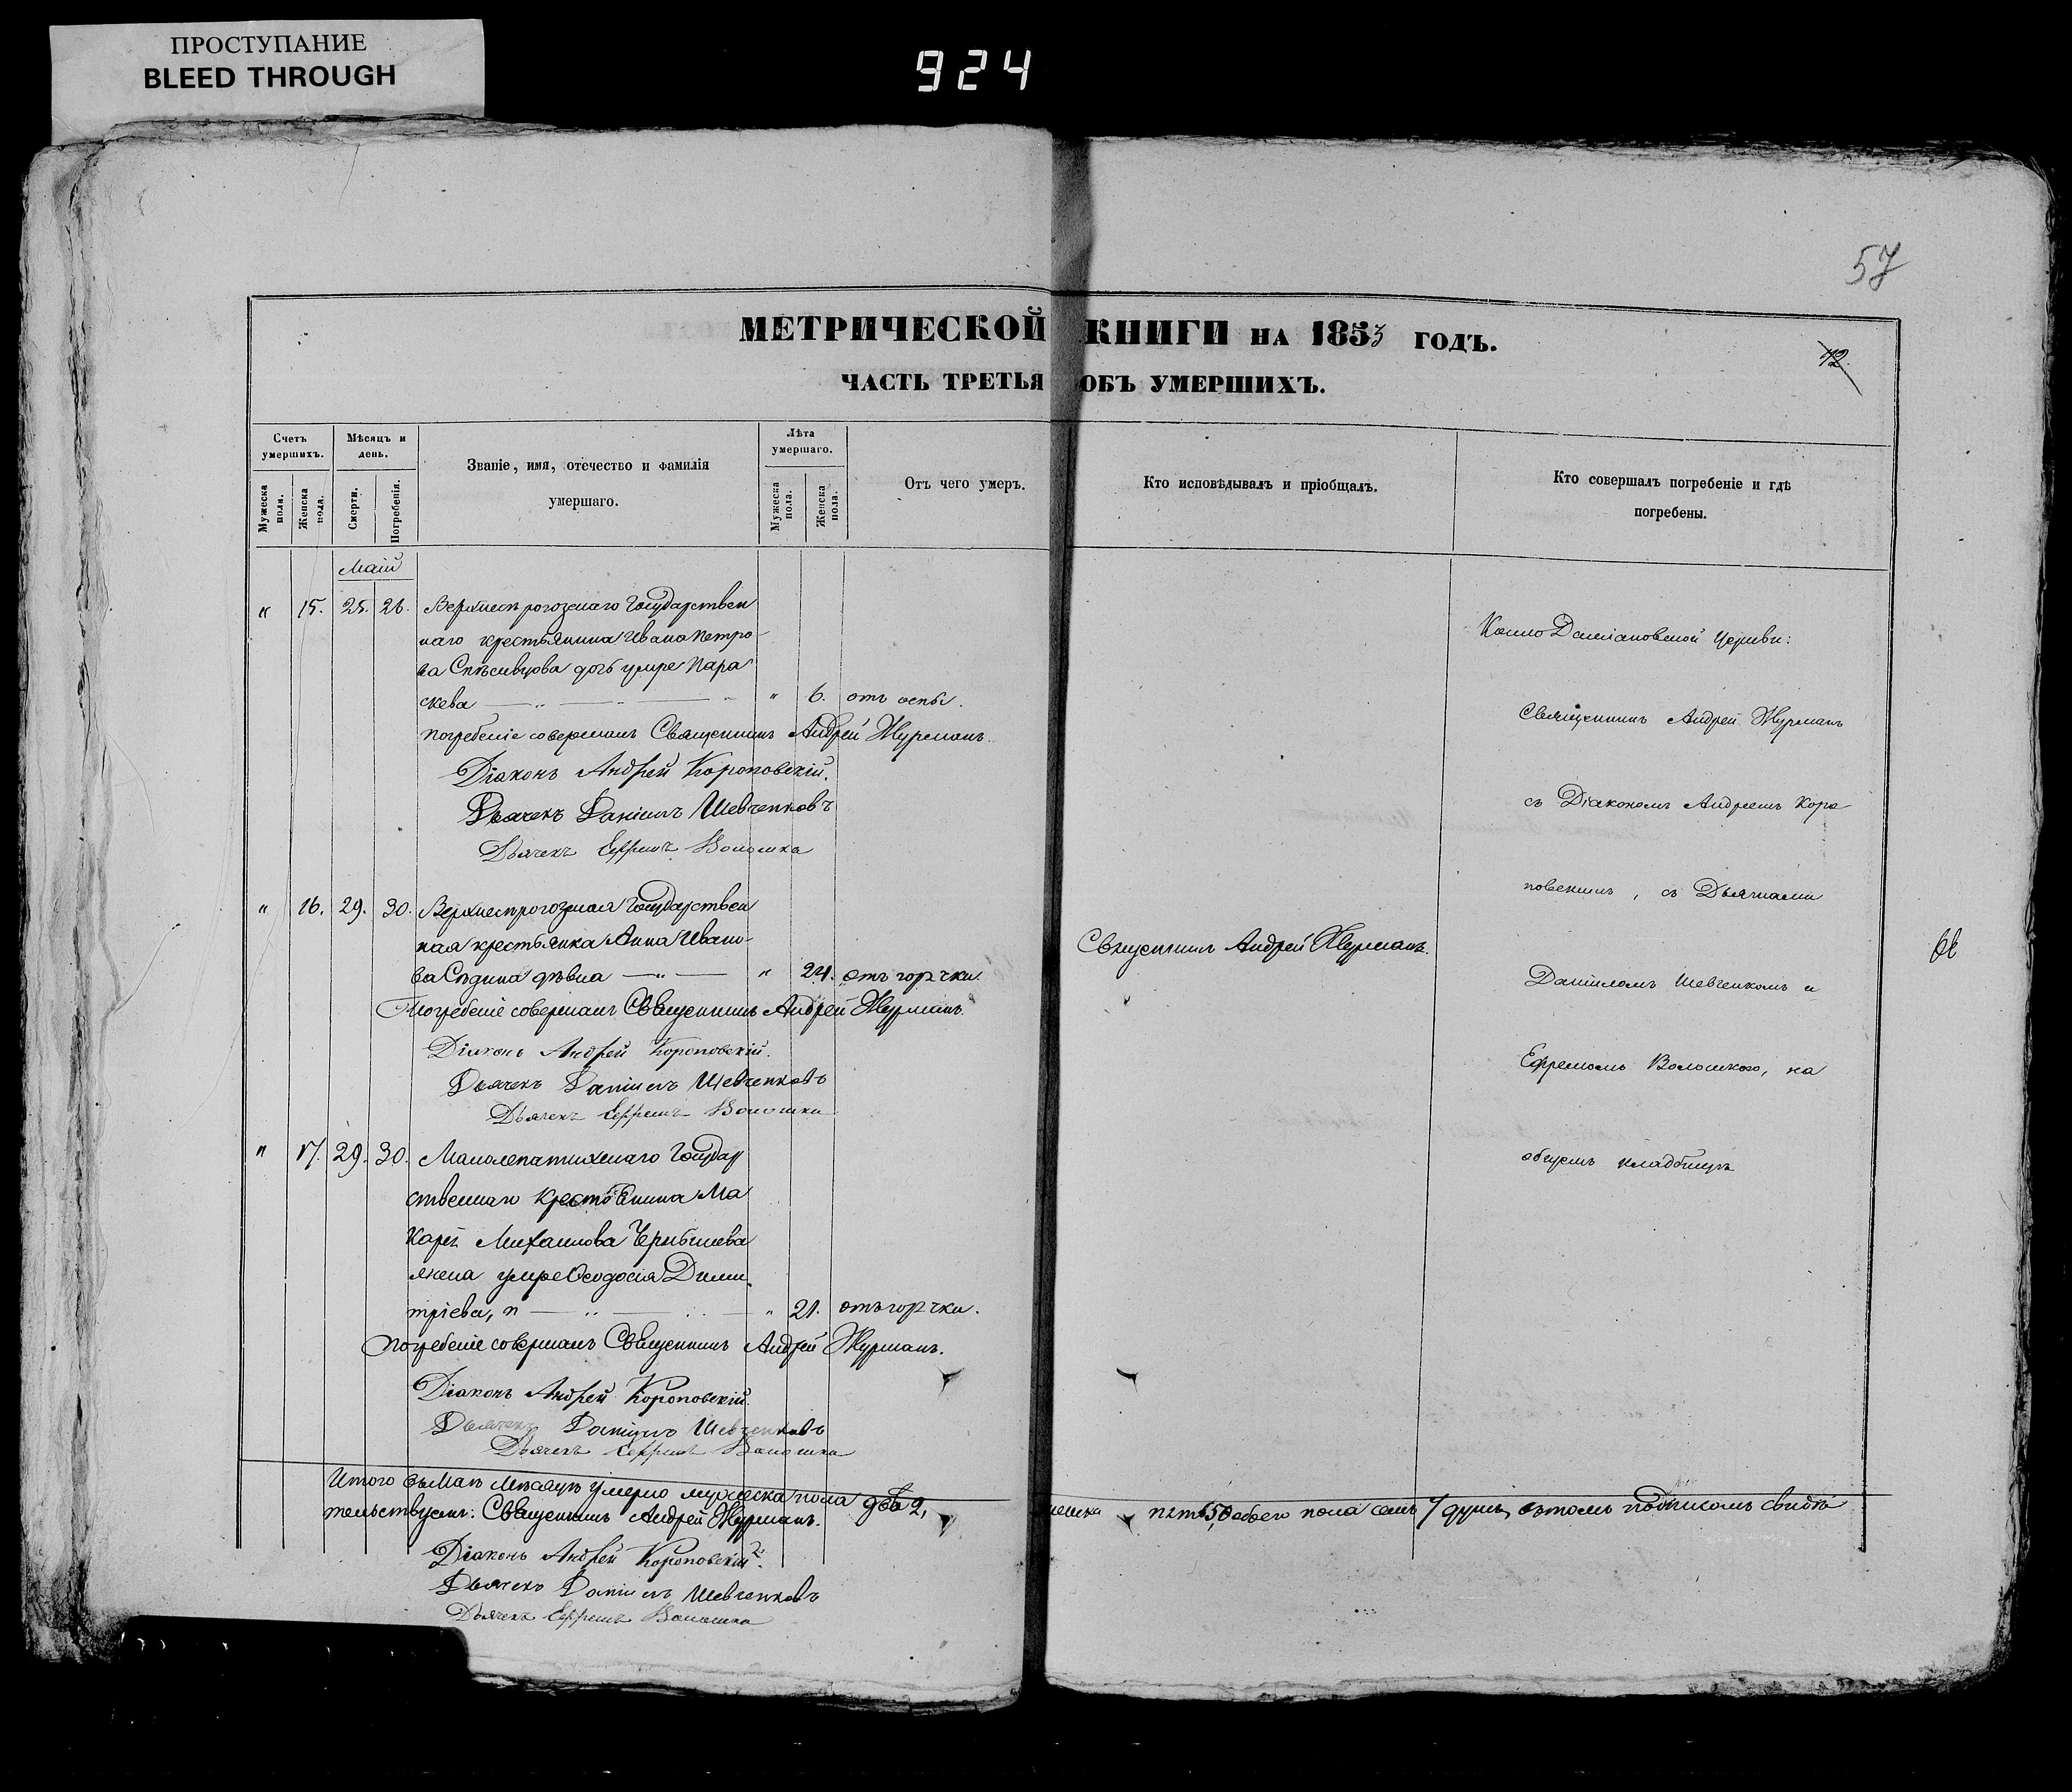 ПРОСТУПАНИЕ
BLEED THROUGH
924
57
МЕТРИЧЕСКОЙ КНИГИ НА 1853 ГОДЪ.
12.
ЧАСТЬ ТРЕТЬЯ ОБЪ УМЕРШИХЪ.
Счетъ умершихъ.
Мужеска пола.
Женска пола.
Мѣсяцъ и день.
Смерти.
Погребенія.
Званіе, имя, отечество и фамилія
умершаго.
Лѣта умершаго.
Мужеска пола.
Женска пола.
Отъ чего умеръ.
Кто исповѣдывалъ и пріобщалъ.
Кто совершалъ погребеніе и гдѣ
погребены.
Маій
" 15. 25. 26. Верхнерогозкаго Государствен
наго крестьянина Ивана Петро-
ва Спѣсивцова дочь умре Пара
скева " 6. отъ оспы.
Погребеніе совершалъ Священникъ Андрей Журманъ.
Діаконъ Андрей Короповскій.
Дьячекъ Даніилъ Шевченковъ
Дьячекъ Ефремъ Волошка
" 16. 29. 30. Верхнерогозкая Государствен
ная крестьянка Анна Ивано-
ва дѣвка " 24. отъ горячки
Погребеніе совершалъ Священникъ Андрей Журманъ.
Діаконъ Андрей Короповскій.
Дьячекъ Даніилъ Шевченковъ
Дьячекъ Ефремъ Волошка
" 17. 29. 30. Малолепатихскаго Государ
ственнаго крестьянина Ма
карія Михаилова Чернышева
жена умре Ѳеодосія Дими
тріева, " 21. отъ горячки.
Погребеніе совершалъ Священникъ Андрей Журманъ.
Діаконъ Андрей Короповскій.
Дьячекъ Даніилъ Шевченковъ
Дьячекъ Ефремъ Волошка
Священникъ Андрей Журманъ.
Космо Даміановской Церкви:
Священникъ Андрей Журманъ
съ Діакономъ Андреемъ Коро
повскимъ, съ Дьячками
Даніиломъ Шевченкомъ и
Ефремомъ Волошкою, на
общемъ кладбищѣ
Итого въ Маѣ Мѣсяцѣ умерло мужеска пола два 2, женска пять 5, обоего пола семь 7 душъ, въ томъ подпискомъ свидѣ
тельствуемъ: Священникъ Андрей Журманъ.
Діаконъ Андрей Короповскій
Дьячекъ Даніилъ Шевченковъ
Дьячекъ Ефремъ Волошка